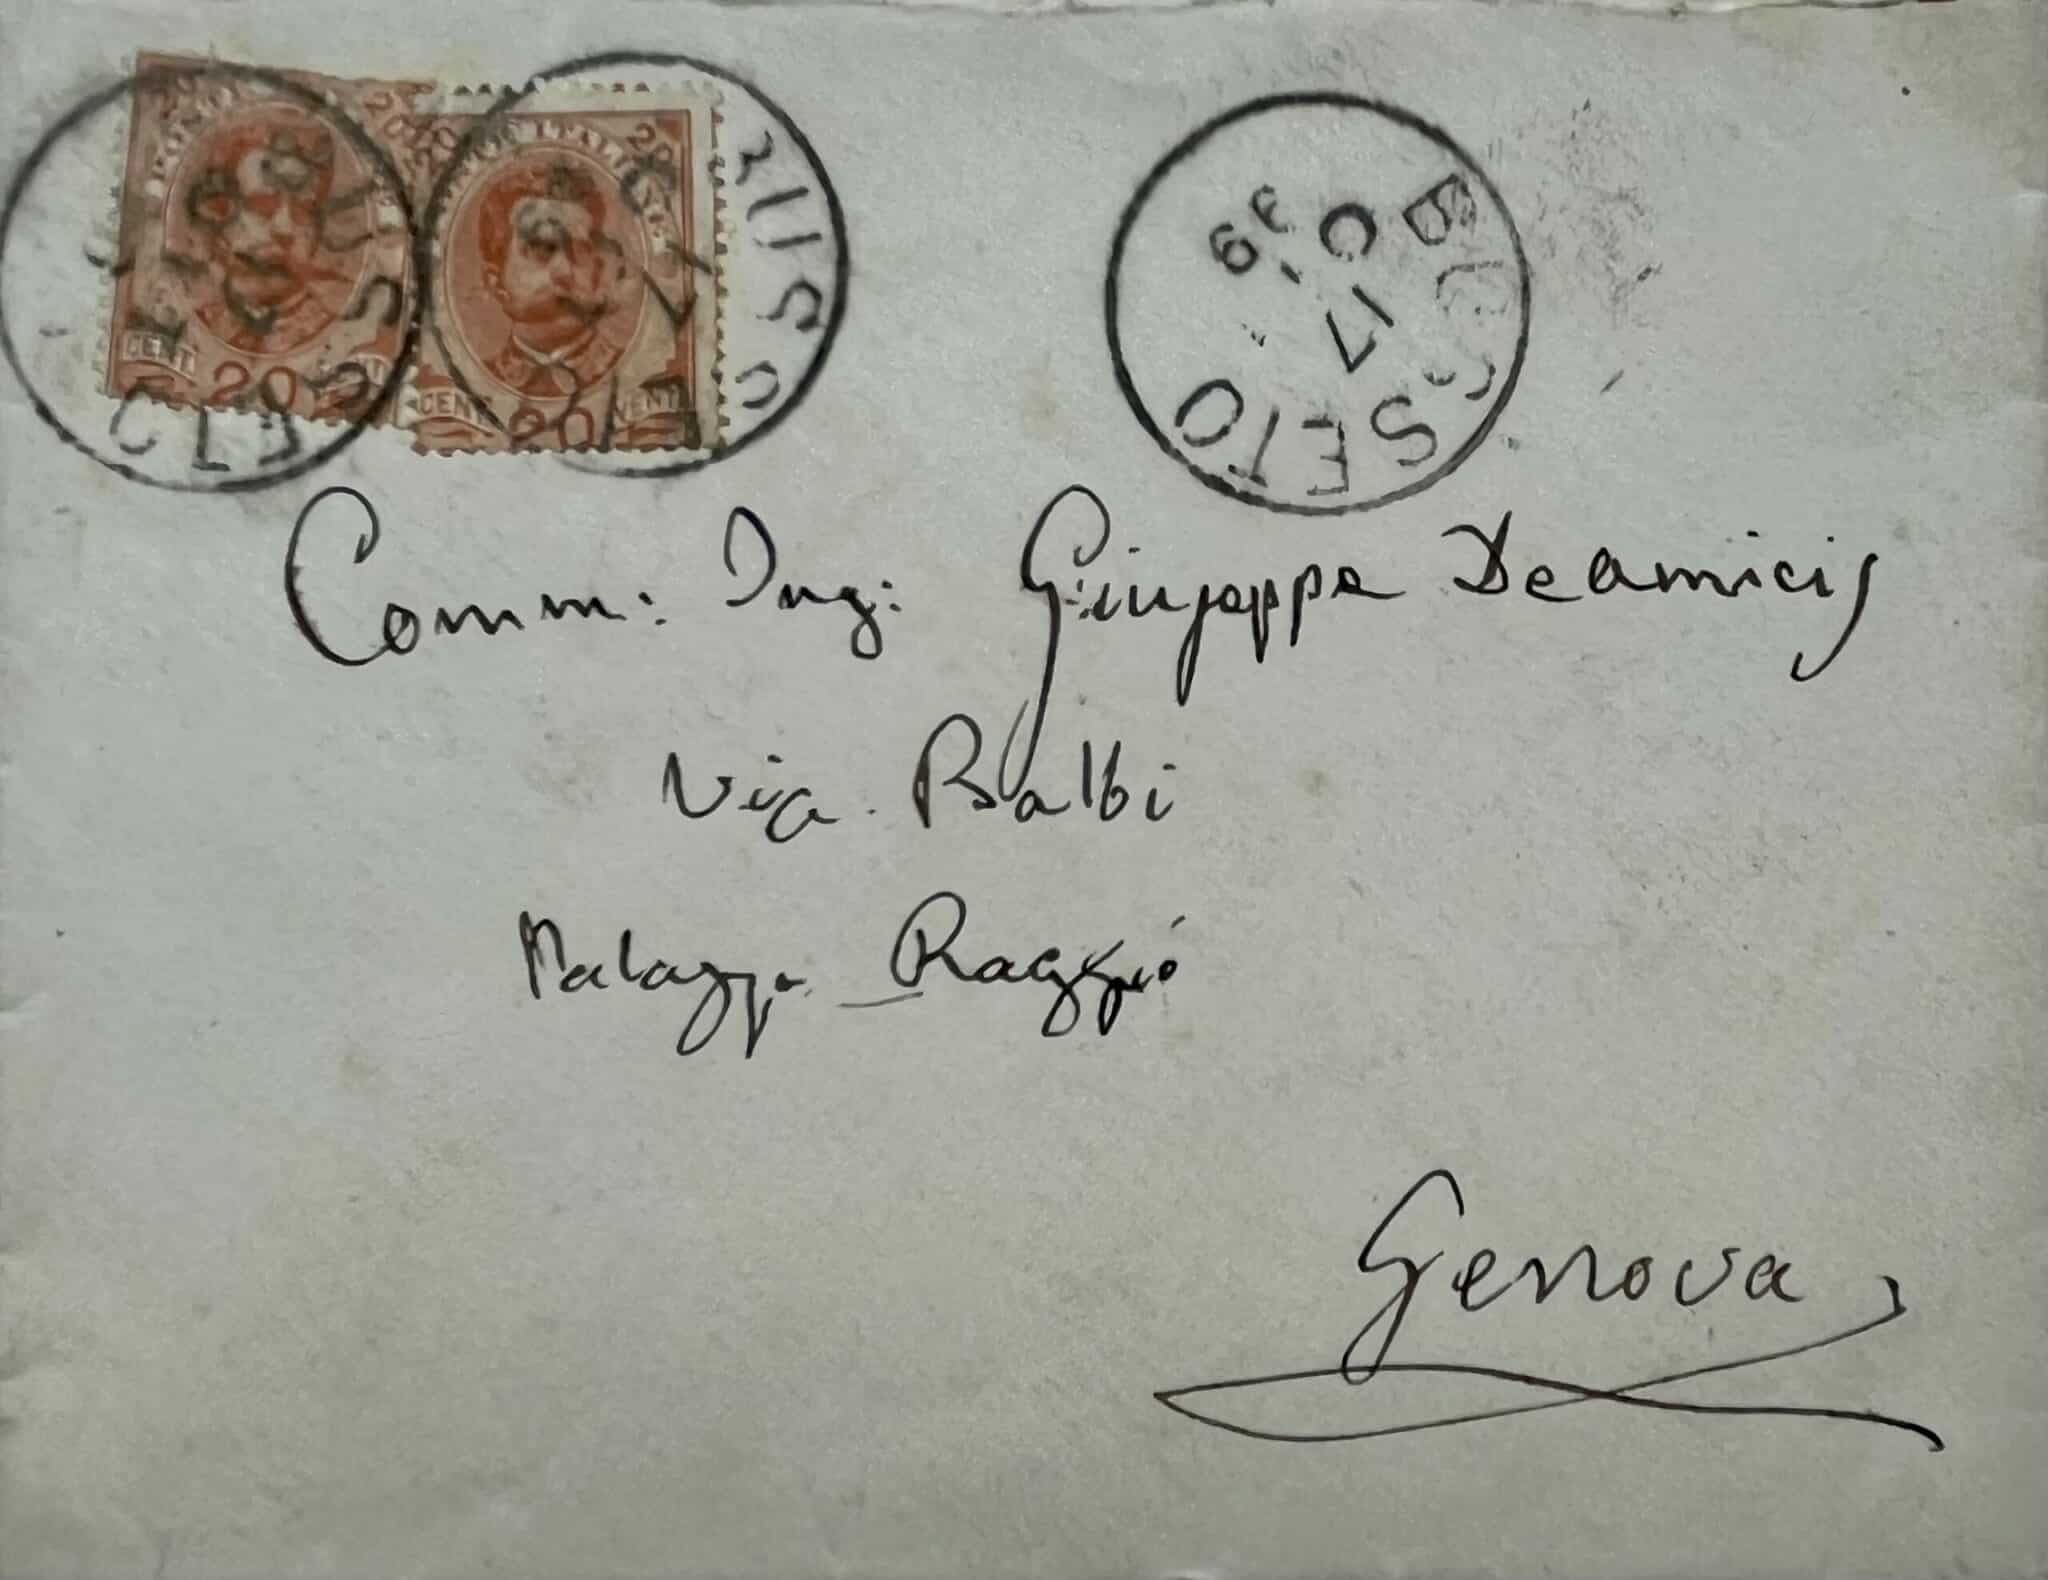 POSTE ITALIANE
20
CENT 20 VENTI
CENT 20 VENTI
BUSSETO
BUSSETO
BUSSETO
17
99
Comm: Ing: Giuseppe Deamicis
Via Balbi
Palazzo Raggio
Genova